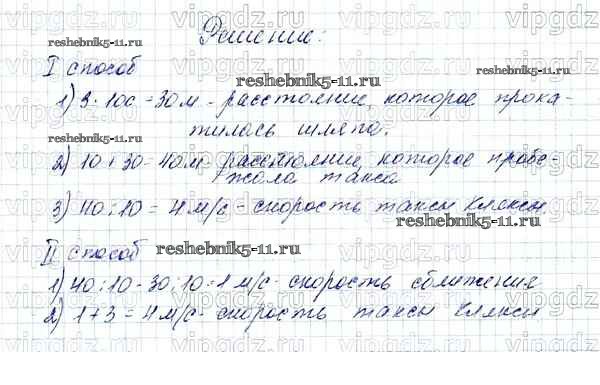 Решение:
I способ
1) 3 · 10с = 30м - расстояние, которое прока-
тилась шляпа.
2) 10 + 30 = 40м расстояние, которое пробе-
жала такса
3) 40 : 10 = 4 м/с - скорость таксы Кляксы.
II способ
1) 40 : 10 - 30 : 10 = 1 м/с - скорость сближения
2) 1 + 3 = 4 м/с - скорость таксы Кляксы
reshebnik5-11.ru
reshebnik5-11.ru
reshebnik5-11.ru
reshebnik5-11.ru
reshebnik5-11.ru
vipgdz